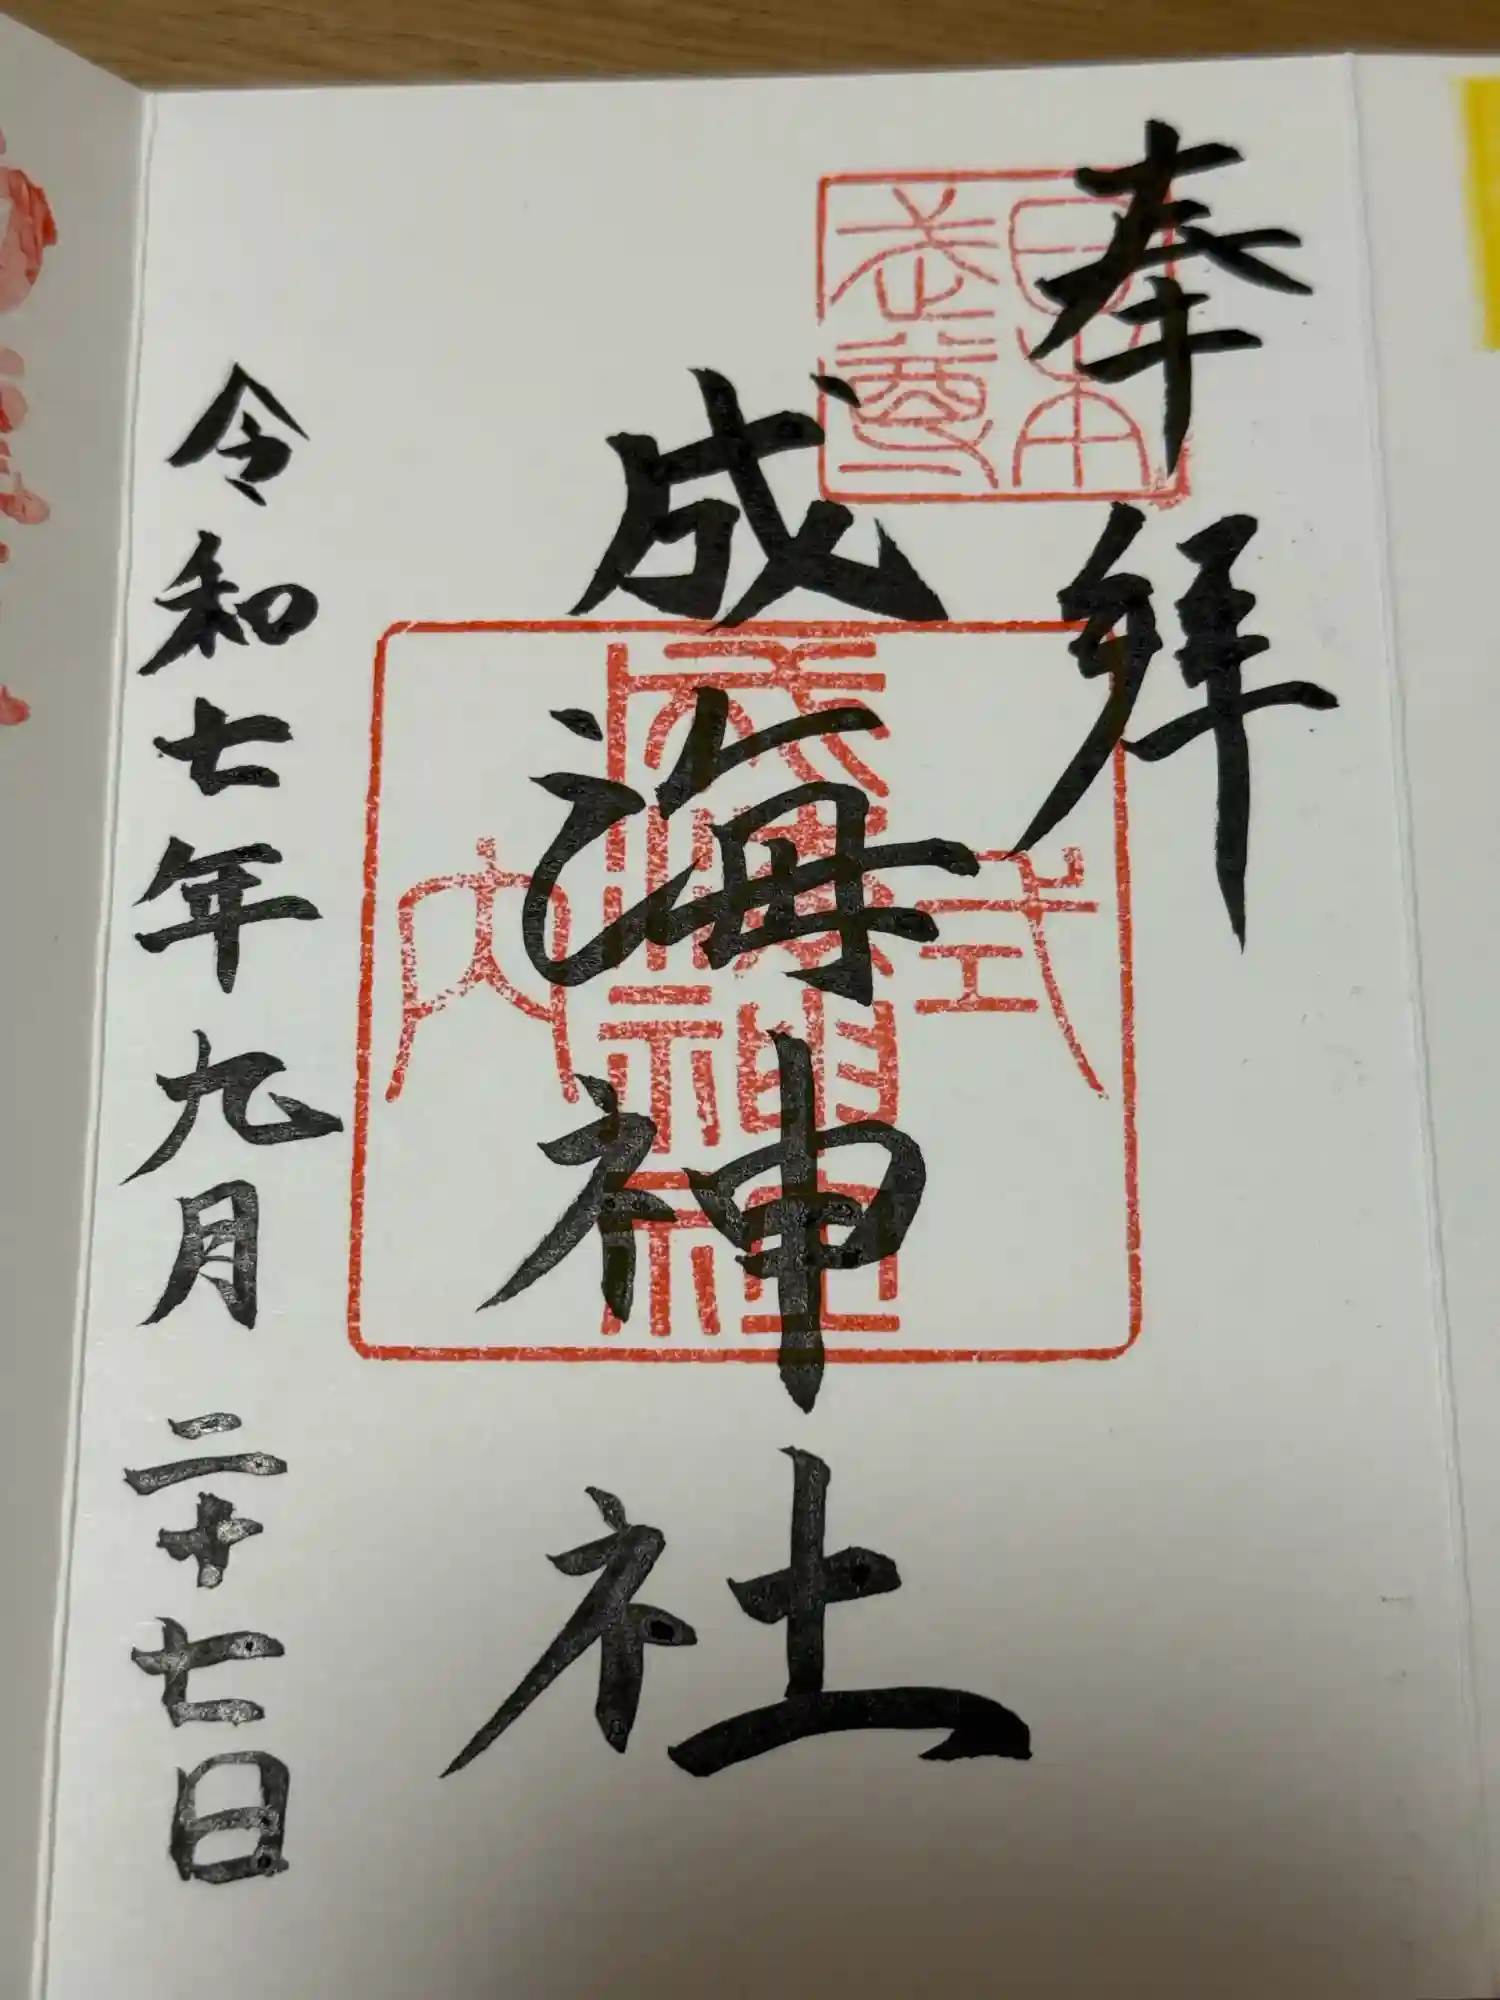 奉拝
日本武尊
成海神社
式内
成海神社
令和七年九月二十七日